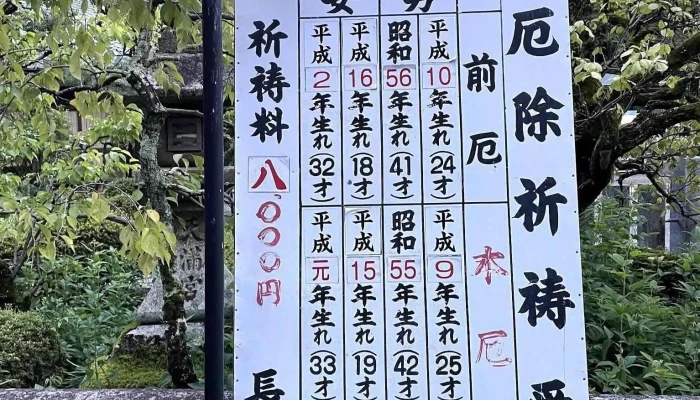 厄除祈祷受
男
女
前厄
平成10年生れ(24才)
昭和56年生れ(41才)
平成16年生れ(18才)
平成2年生れ(32才)
本厄
平成9年生れ(25才)
昭和55年生れ(42才)
平成15年生れ(19才)
平成元年生れ(33才)
祈祷料八〇〇〇円
長